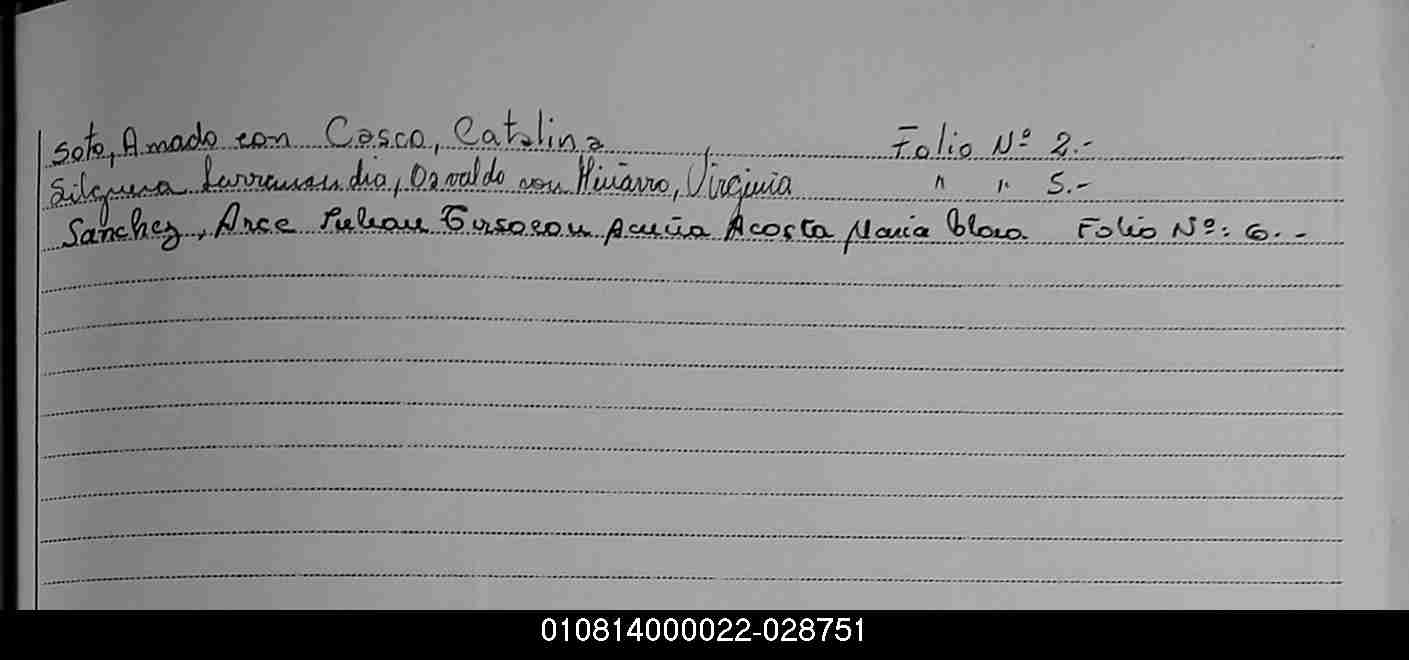 Soto, Amado con Casco, Catalina Folio Nº 2.-
Silguera Larramendia, Osvaldo con Miñarro, Virginia " " 5.-
Sanchez, Arce Julian Tirso con Acuña Acosta Maria Clara Folio Nº: 6.-
010814000022-028751